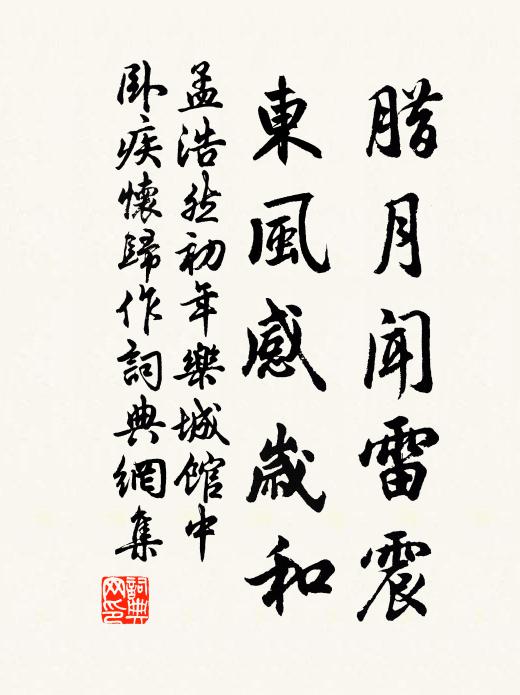 腊月闻雷震
東風感歲和
孟浩然初年樂城館中
卧疾懷歸作詞典網集
詞典网印